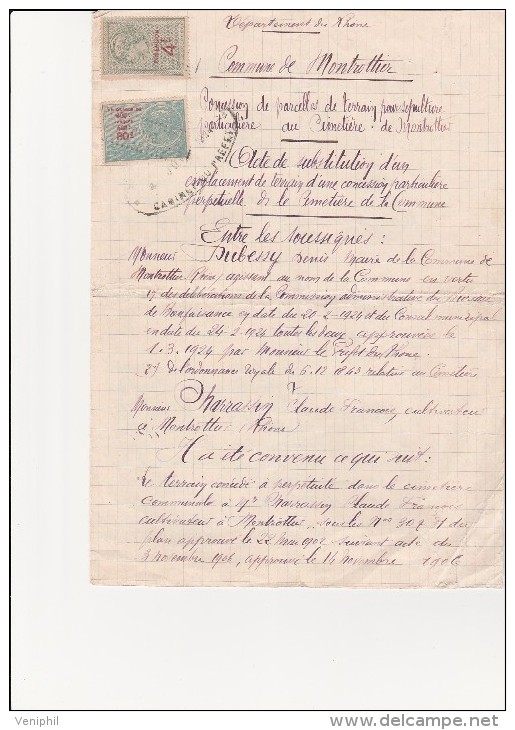 Département du Rhône
Commune de Montrottier
Concession de parcelles de terrain pour sépulture
particulière au Cimetière de Montrottier
Acte de substitution d'un
emplacement de terrain d'une concession particulière
perpetuelle de le Cimetière de la Commune
Entre les soussignés :
Monsieur Dubessy Denis Maire de la Commune de
Montrottier Rhône agissant au nom de la Commune en vertu
1º des délibérations de la Commission administrative du Bureau
de Bienfaisance en date du 20-2-1924 et du Conseil municipal
en date du 24-2-1924 toutes les deux approuvées le
1.3.1924 par Monsieur le Préfet du Rhône.
2º de l'ordonnance royale du 6.12.1843 relative au Cimetière
Monsieur Claude Francois, cultivateur
à Montrottier Rhône
Il a été convenu ce qui suit :
Le terrain concédé à perpétuité dans le cimetière
communale à Mr Claude François
cultivateur à Montrottier, sous les Nos du
plan approuvé le 22 Mai 1902 suivant acte du
3 novembre 1906, approuvé le 14 novembre 1906
CABINET DU PREFET
Veniphil
http://veniphil.delcampe.net